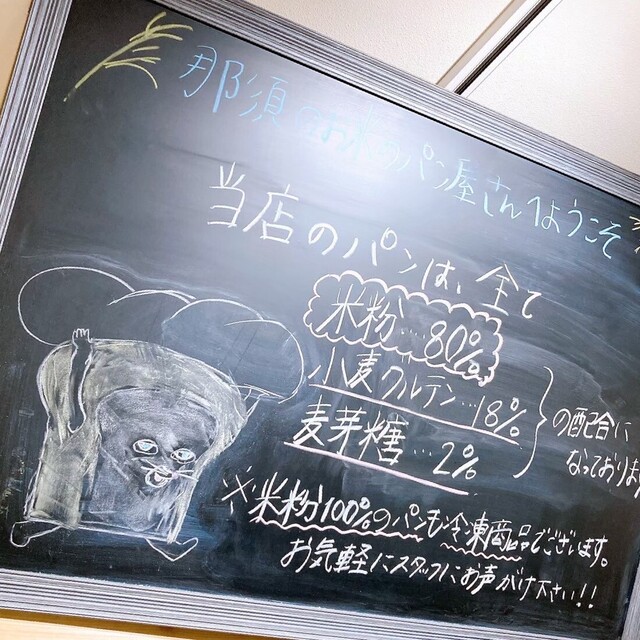 那須のお米のパン屋さんへようこそ
当店のパンは、全て
米粉…80%
小麦グルテン…18%
麦芽糖…2%
の配合に
なっております
※米粉100%のパンも冷凍商品でございます。
お気軽にスタッフにお声がけ下さい!!